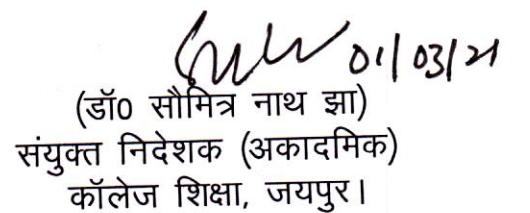 01/03/21
(डॉ0 सौमित्र नाथ झा)
संयुक्त निदेशक (अकादमिक)
कॉलेज शिक्षा, जयपुर।